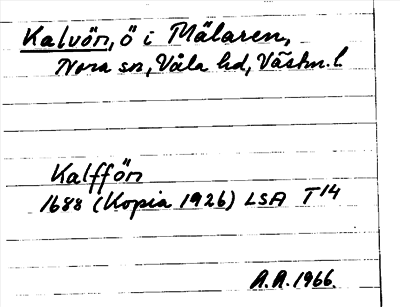 Kalvön, ö i Mälaren,
Nora sn, Våla hd, Västm.l.
Kalffön
1688 (Kopia 1926) LSA T14
A.A. 1966.